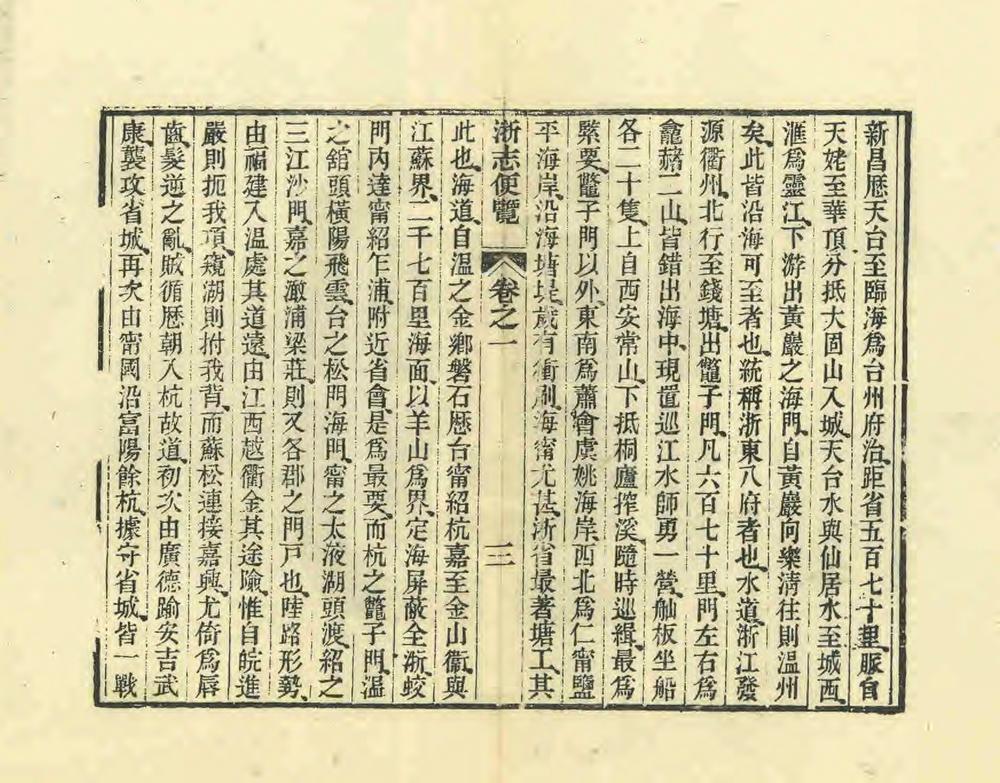 新昌厯天台至臨海爲台州府治距省五百七十里脈自
天姥至華頂分抵大固山入城天台水與仙居水至城西
滙爲靈江下游出黃巖之海門自黃巖向樂淸往則温州
矣此皆沿海可至者也統稱浙東八府者也水道浙江發
源衢州北行至錢塘出鼈子門凡六百七十里門左右爲
龕赭二山皆錯出海中現置巡江水師勇一營舢板坐船
各二十隻上自西安常山下抵桐廬搾溪隨時巡緝最爲
緊要鼈子門以外東南爲蕭會虞姚海岸西北爲仁甯鹽
平海岸沿海塘堤歲有衝刷海甯尤甚浙省最著塘工其
浙志便覽 卷之一 三
此也海道自温之金鄉磐石厯台甯紹杭嘉至金山衞與
江蘇界二千七百里海面以羊山爲界定海屏蔽全浙蛟
門内達甯紹乍浦附近省會是爲最要而杭之鼈子門温
之舘頭橫陽飛雲台之松門海門甯之太液湖頭渡紹之
三江沙門嘉之澉浦梁莊則又各郡之門戸也陸路形勢
由福建入温處其道遠由江西越衢金其途險惟自皖進
嚴則扼我項窺湖則拊我背而蘇松連接嘉興尤倚爲唇
齒髮逆之亂賊循厯朝入杭故道初次由廣德踰安吉武
康襲攻省城再次由甯國沿富陽餘杭據守省城皆一戰